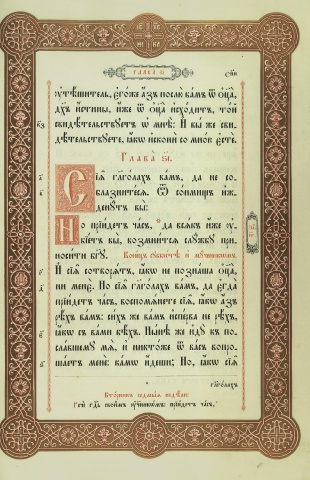 Глава̀ ѕ҃і
ᲂу҆тѣ́шитель, є҆го́же а҆́зъ послю̀ ва́мъ ѿ ѻ҆ц҃а̀,
дх҃ъ и҆́стины, и҆́же ѿ ѻ҆ц҃а̀ и҆схо́дитъ, то́й
свидѣ́тельствꙋетъ ѡ҆ мнѣ̀: И҆ вы́ же сви-
дѣ́тельствꙋете, ꙗ҆́кѡ и҆сконѝ со мно́ю є҆стѐ.
Глава̀ ѕ҃і.
Сїѧ̑ гл҃го́лахъ ва́мъ, да не со-
блазнитесѧ. Ѿ со́нмищъ и҆ж-
денꙋ́тъ вы̀:
Но прїи́детъ ча́съ, да всѧ́къ и҆́же ᲂу҆-
бїе́тъ вы̀, возмни́тсѧ слꙋ́жбꙋ при-
носи́ти бг҃ꙋ.
Коне́цъ сꙋббѡ́тѣ и҆ мч҃никѡмъ.
И҆ сїѧ̑ сотворѧ́тъ, ꙗ҆́кѡ не позна́ша ѻ҆ц҃а̀,
ни менє̀. Но сїѧ̑ гл҃го́лахъ ва́мъ, да є҆гда̀
прїи́детъ ча́съ, воспомѧнете сїѧ̑, ꙗ҆́кѡ а҆́зъ
рѣ́хъ ва́мъ: си́хъ же ва́мъ и҆спе́рва не рѣ́хъ,
ꙗ҆́кѡ съ ва́ми бѣ́хъ. Нн҃ѣ же и҆дꙋ̀ къ по-
сла́вшемꙋ мѧ̀, и҆ никто́же ѿ ва́съ вопро-
ша́етъ менѐ: ка́мѡ и҆́деши; Но, ꙗ҆́кѡ сїѧ̑
гл҃го́лахъ
Вто́рникъ седмы́ѧ недѣ́ли:
Речѐ гд҇ь свои̑мъ ᲂу҆ченикѡ́мъ: прїи́детъ ча́съ,